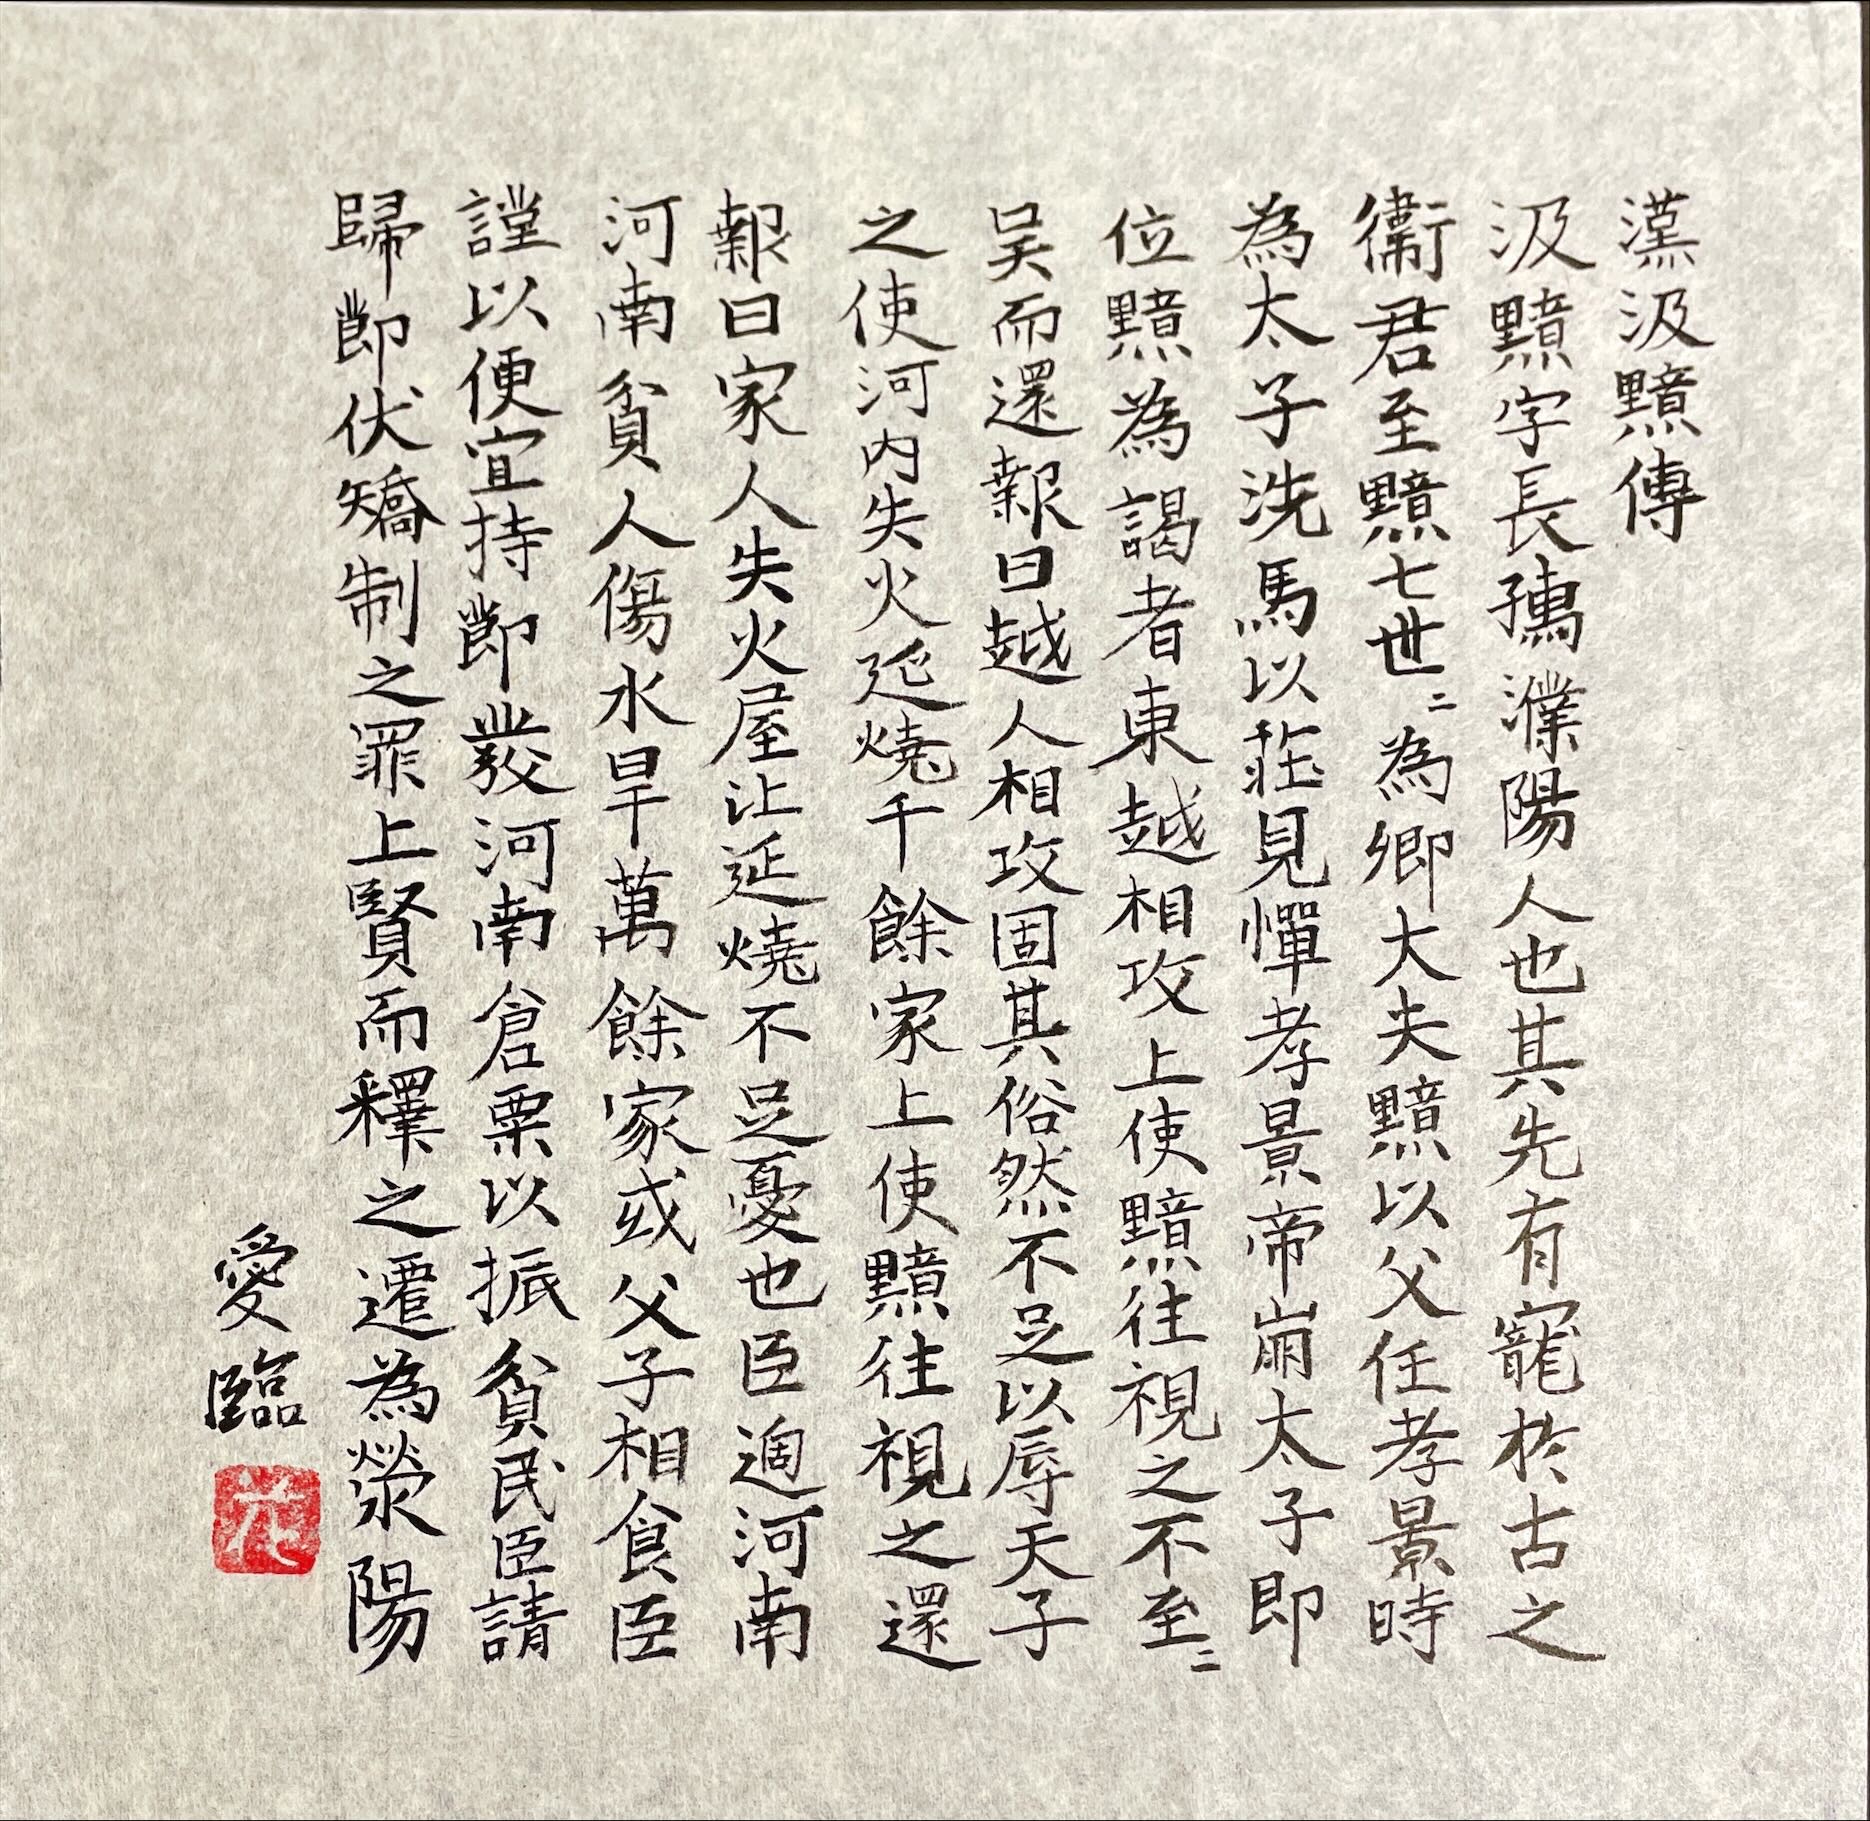 漢汲黯傳
汲黯字長孺濮陽人也其先有寵於古之
衛君至黯七世〻為卿大夫黯以父任孝景時
為太子洗馬以莊見憚孝景帝崩太子即
位黯為謁者東越相攻上使黯往視之不至〻
吳而還報曰越人相攻固其俗然不足以辱天子
之使河內失火延燒千餘家上使黯往視之還
報曰家人失火屋比延燒不足憂也臣過河南
河南貧人傷水旱萬餘家或父子相食臣
謹以便宜持節發河南倉粟以振貧民臣請
歸節伏矯制之罪上賢而釋之遷為滎陽
愛臨
花